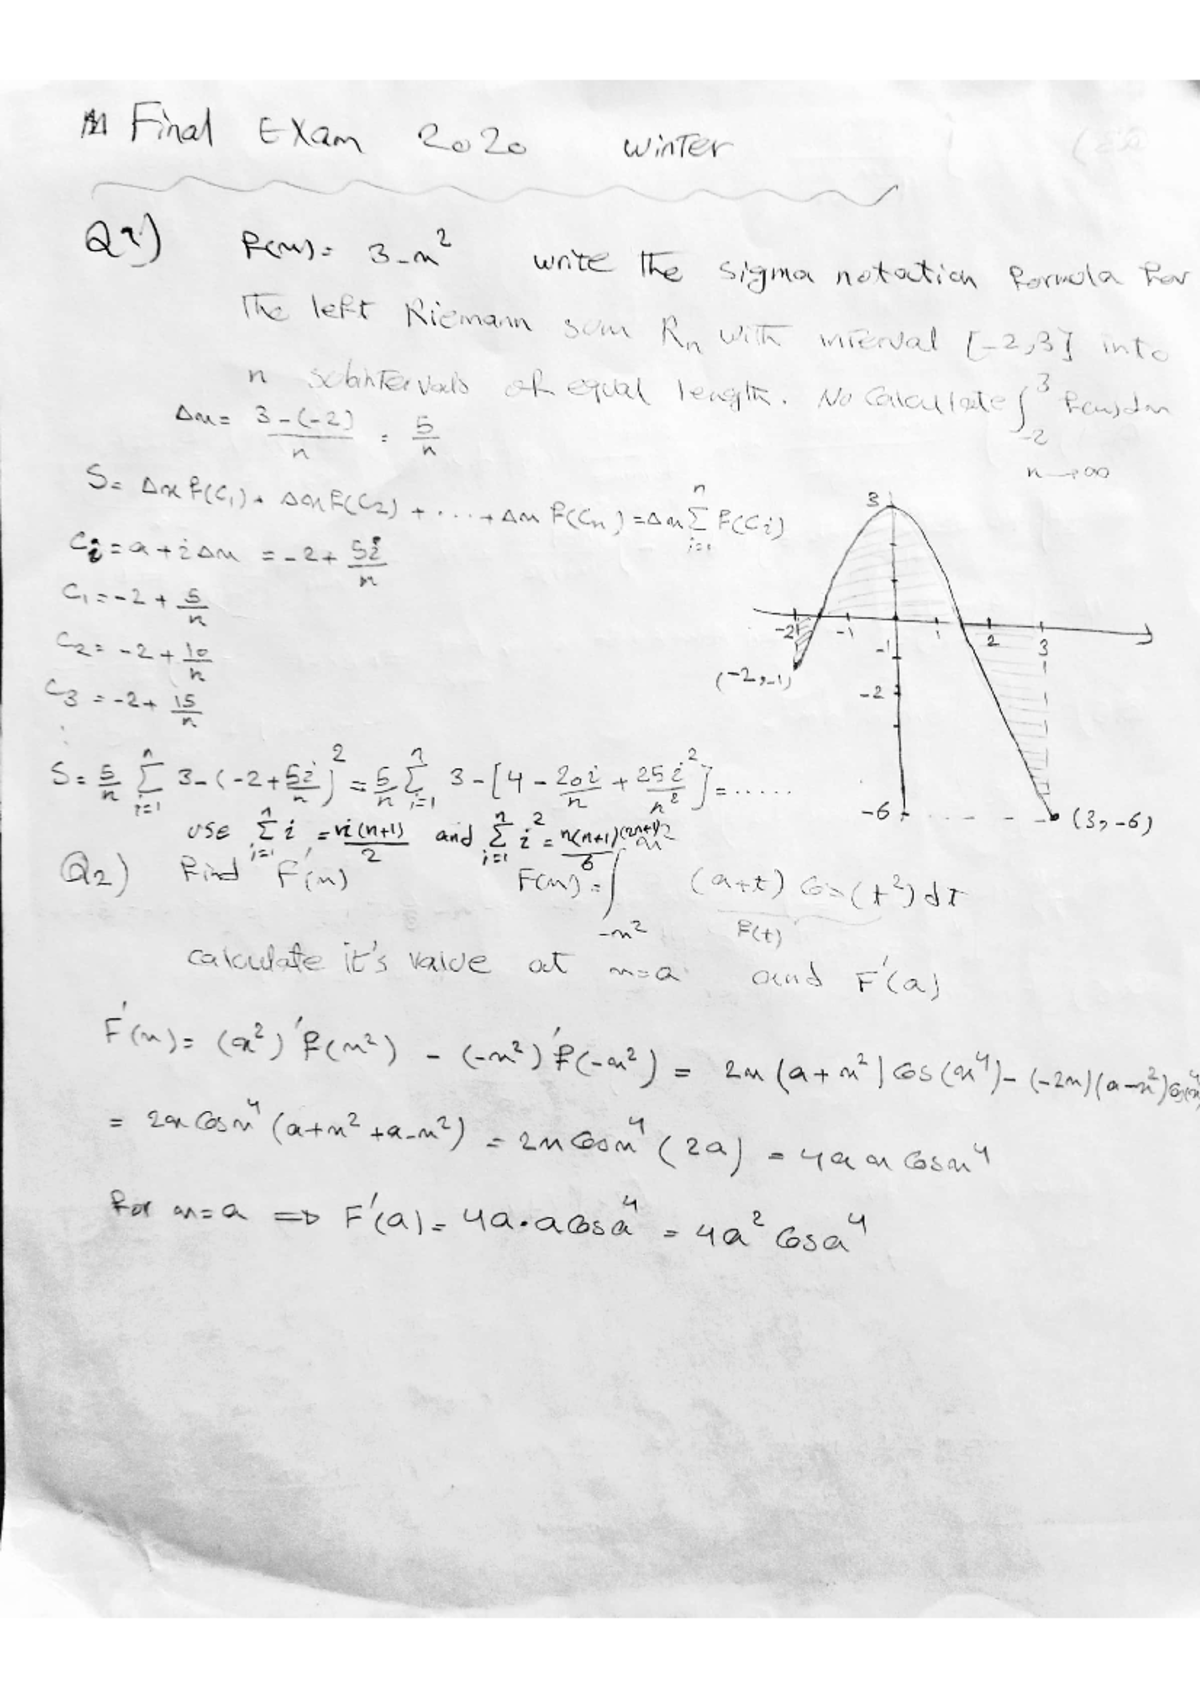 Final Exam 2020 winter
Q1) f(x) = 3-x² write the sigma notation formula for
the left Riemann sum Rn with interval [-2,3] into
n subintervals of equal length. No Calculate ∫₋₂³ f(x)dx
Δx = 3-(-2)/n = 5/n
n→∞
S = Δx f(C₁) + Δx f(C₂) + ... + Δx f(Cn) = Δx Σᵢ₌₁ⁿ f(Cᵢ)
Cᵢ = a + iΔx = -2 + 5i/n
C₁ = -2 + 5/n
C₂ = -2 + 10/n
C₃ = -2 + 15/n
3
-2 -1 1 2 3
-1
(-2,-1)
-2
-6
(3,-6)
S = 5/n Σᵢ₌₁ⁿ 3-(-2+5i/n)² = 5/n Σᵢ₌₁ⁿ 3-[4-20i/n+25i²/n²] = .....
use Σᵢ₌₁ⁿ i = n(n+1)/2 and Σᵢ₌₁ⁿ i² = n(n+1)(2n+1)/6
Q2) Find F'(x) F(x) = ∫₋ₓ²^x² (a+t) Cos(t²) dt
f(t)
calculate it's value at x=a and F'(a)
F'(x) = (x²)' f(x²) - (-x²)' f(-x²) = 2x(a+x²) Cos(x⁴) - (-2x)(a-x²) Cos(x⁴
= 2x Cosx⁴ (a+x²+a-x²) = 2x Cosx⁴ (2a) = 4ax Cosx⁴
for x=a ⇒ F'(a) = 4a·a Cosa⁴ = 4a² Cosa⁴